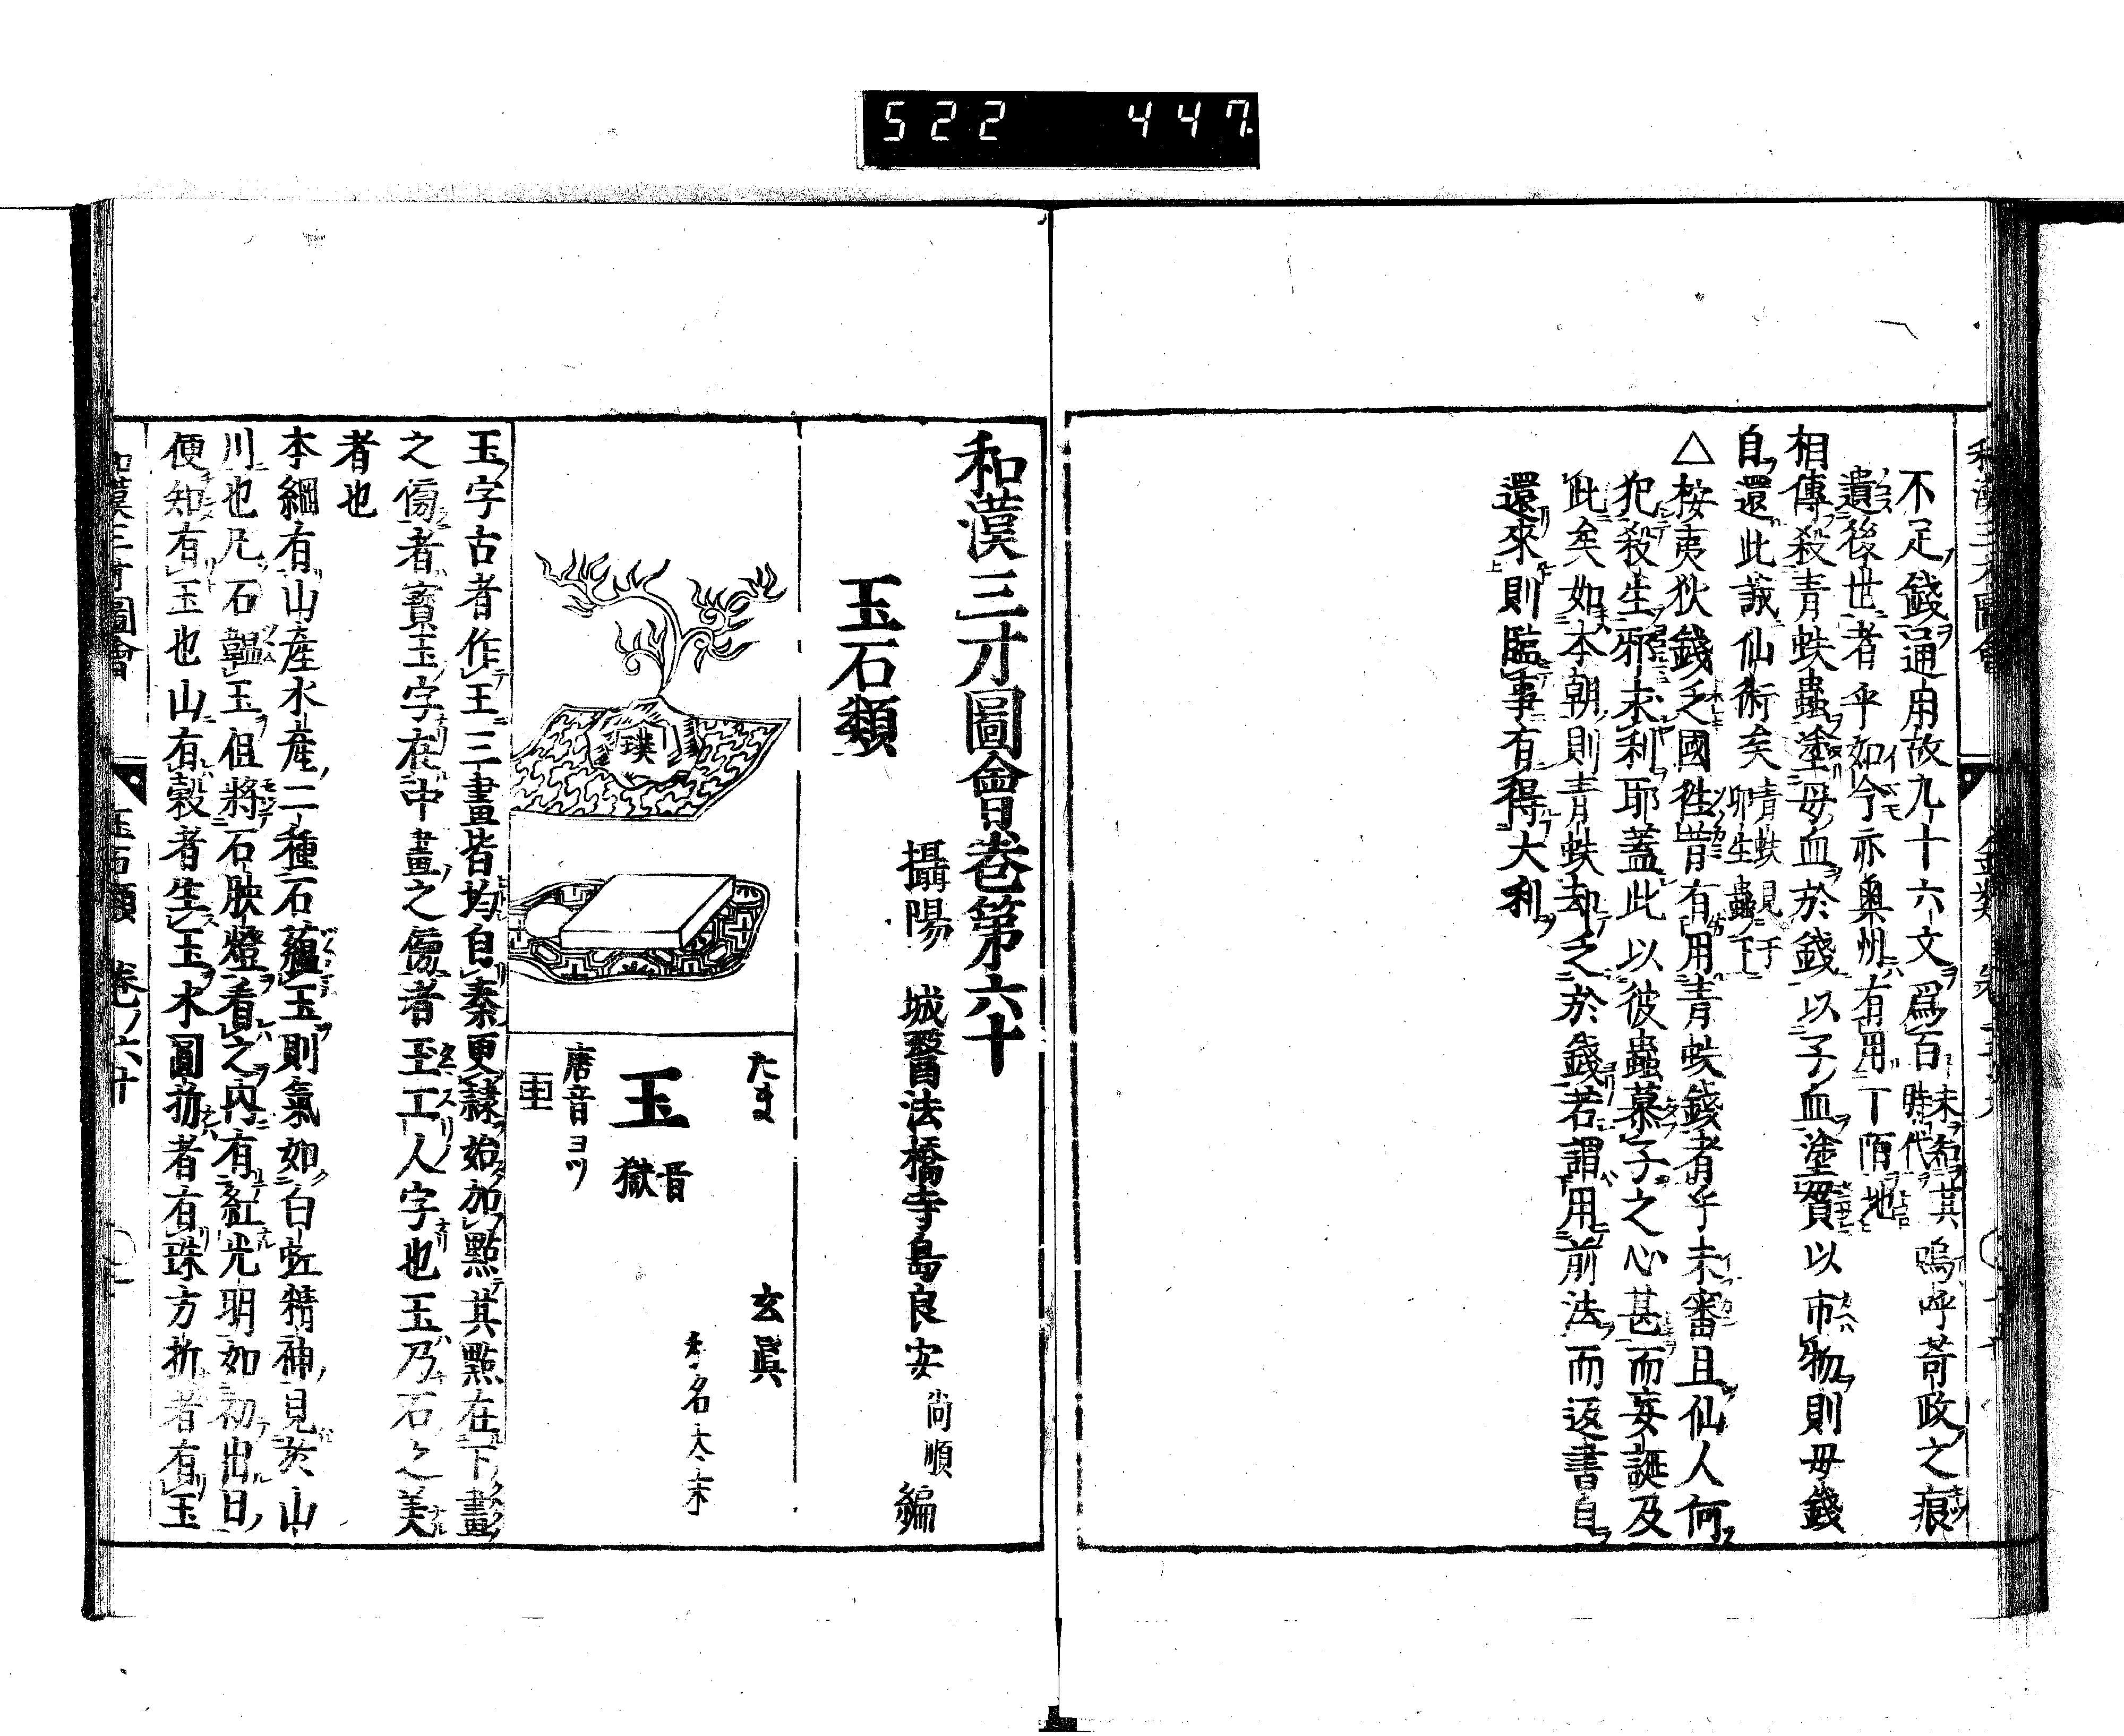 522 447
不足錢通用故九十六文爲百未知其時代嗚呼苛政之痕
遺後世者乎如今亦奥州有用丁陌地
相傳殺青蚨蟲塗母血於錢以子血塗貿以市物則母錢
自還此誠仙術矣青蚨見于卵生蟲下
△按夷狄錢乏國徃昔有用青蚨錢者乎未審且仙人何
犯殺生邪求利耶蓋此以彼蟲慕子之心甚而妄誕及
此矣如本朝則青蚨却乏於錢若謂用前法而返書自
還來則臨事有得大利
和漢三才圖會卷第六十
攝陽 城醫法橋寺島良安尚順編
玉石類
璞
たま
玄眞
和名太末
玉音獄
唐音ヨツ
玉字古者作王三畫皆均自秦更隷始加點其點在下畫
之傍者寳玉字在中畫之傍者玊工人字也玉乃石之美
者也
本綱有山産水産二種石蘊玉則氣如白虹精神見於山
川也凡石韞玉但將石映燈看之内有紅光明如初出日
便知有玉也山有穀者生玉水圓折者有珠方折者有玉
和漢三才圖會 玉石類 卷ノ六十